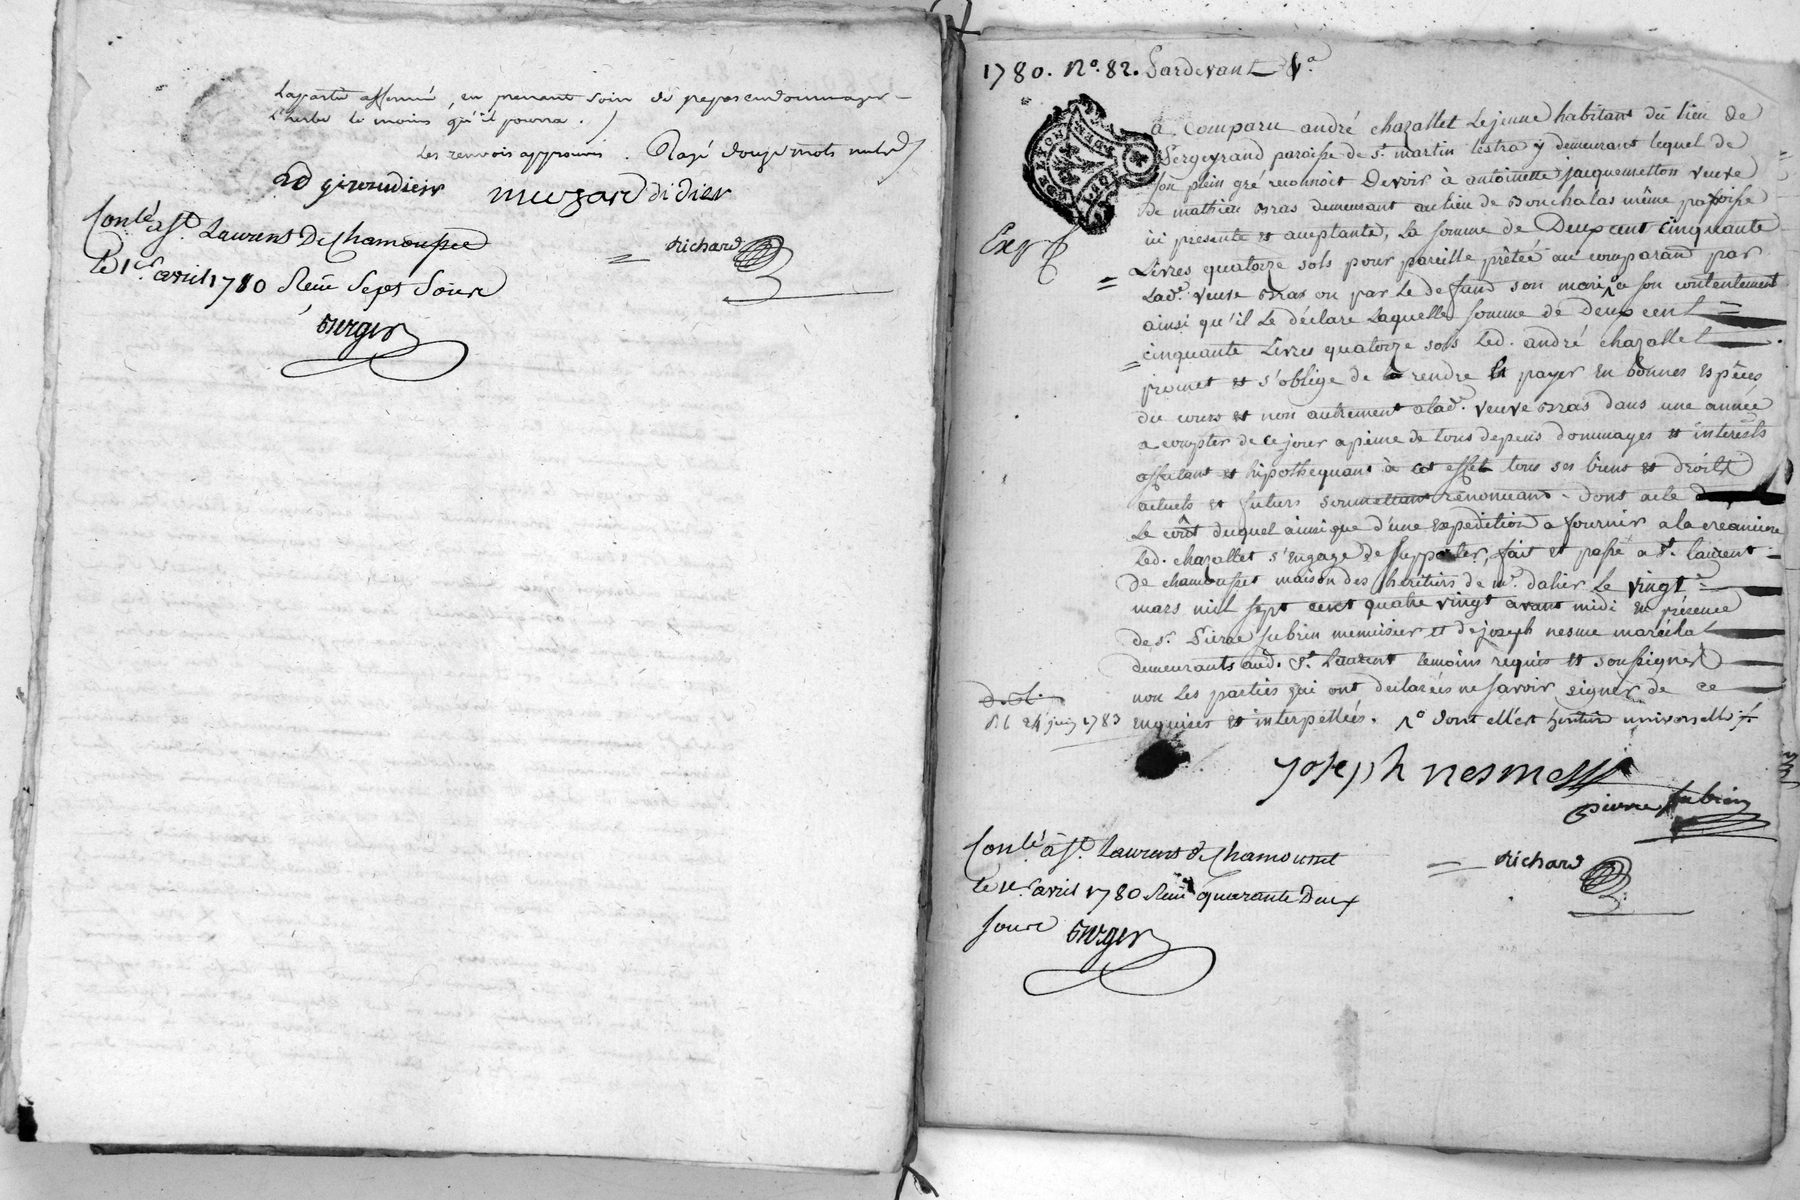 La partie affermé, en prenant soin de ne pas endommager
L'herbe le moins qu'il pourra.
Les renvois approuvés. Rayé douze mots nuls
giroudier muzard didier
Conlé à St. Laurent De Chamousset
Richard
le 1er avril 1780 Reçu Sept Sous
Berger
1780. No. 82. Pardevant &a
a Comparu andré chazallet Lejeune habitant du lieu de
Sergeyrand paroisse de St. martin lestra y demeurant lequel de
son plein gré reconnoit Devoir à antoinette jacquemetton veuve
de mathieu Bras demeurant au lieu de Bonchalas même paroisse
ici presente et acceptante, La somme de Deux cent cinquante
Exp
Livres quatorze sols pour pareille prêtée au comparand par
Lade. veuve Bras ou par Le defund son mari, a son contentement
ainsi qu'il Le déclare Laquelle somme de deux cent
cinquante Livres quatorze sols Led. andré chazallet
promet et s'oblige de rendre et payer en bonnes espèces
du cours et non autrement a lade. veuve Bras dans une année
a compter de ce jour a peine de tous depens dommages et interêts
affectant et hipothequant à cet effet tous ses biens et droits
actuels et futurs soumettant renoncant. dont acte
Le coût duquel ainsi que d'une expédition a fournir a la creanciere
Led. chazallet s'engage de supporter, fait et passé a St. laurent
de chamousset maison des heritiers de mr. dalier Le vingt
mars mil sept cent quatre vingt avant midi en présence
de Sr. Pierre subrin menuisier et de joseph nesme maréchal
demeurants aud. St. Laurent temoins requis et soussignés
non Les parties qui ont declarées ne savoir signer de ce
24 juin 1783 enquises et interpellées. 1o dont elle est heritiere universelle
joseph nesme
pierre subrin
Conlé à St. Laurent de Chamousset
Richard
le 1er avril 1780 Reçu quarante Deux
sous Berger